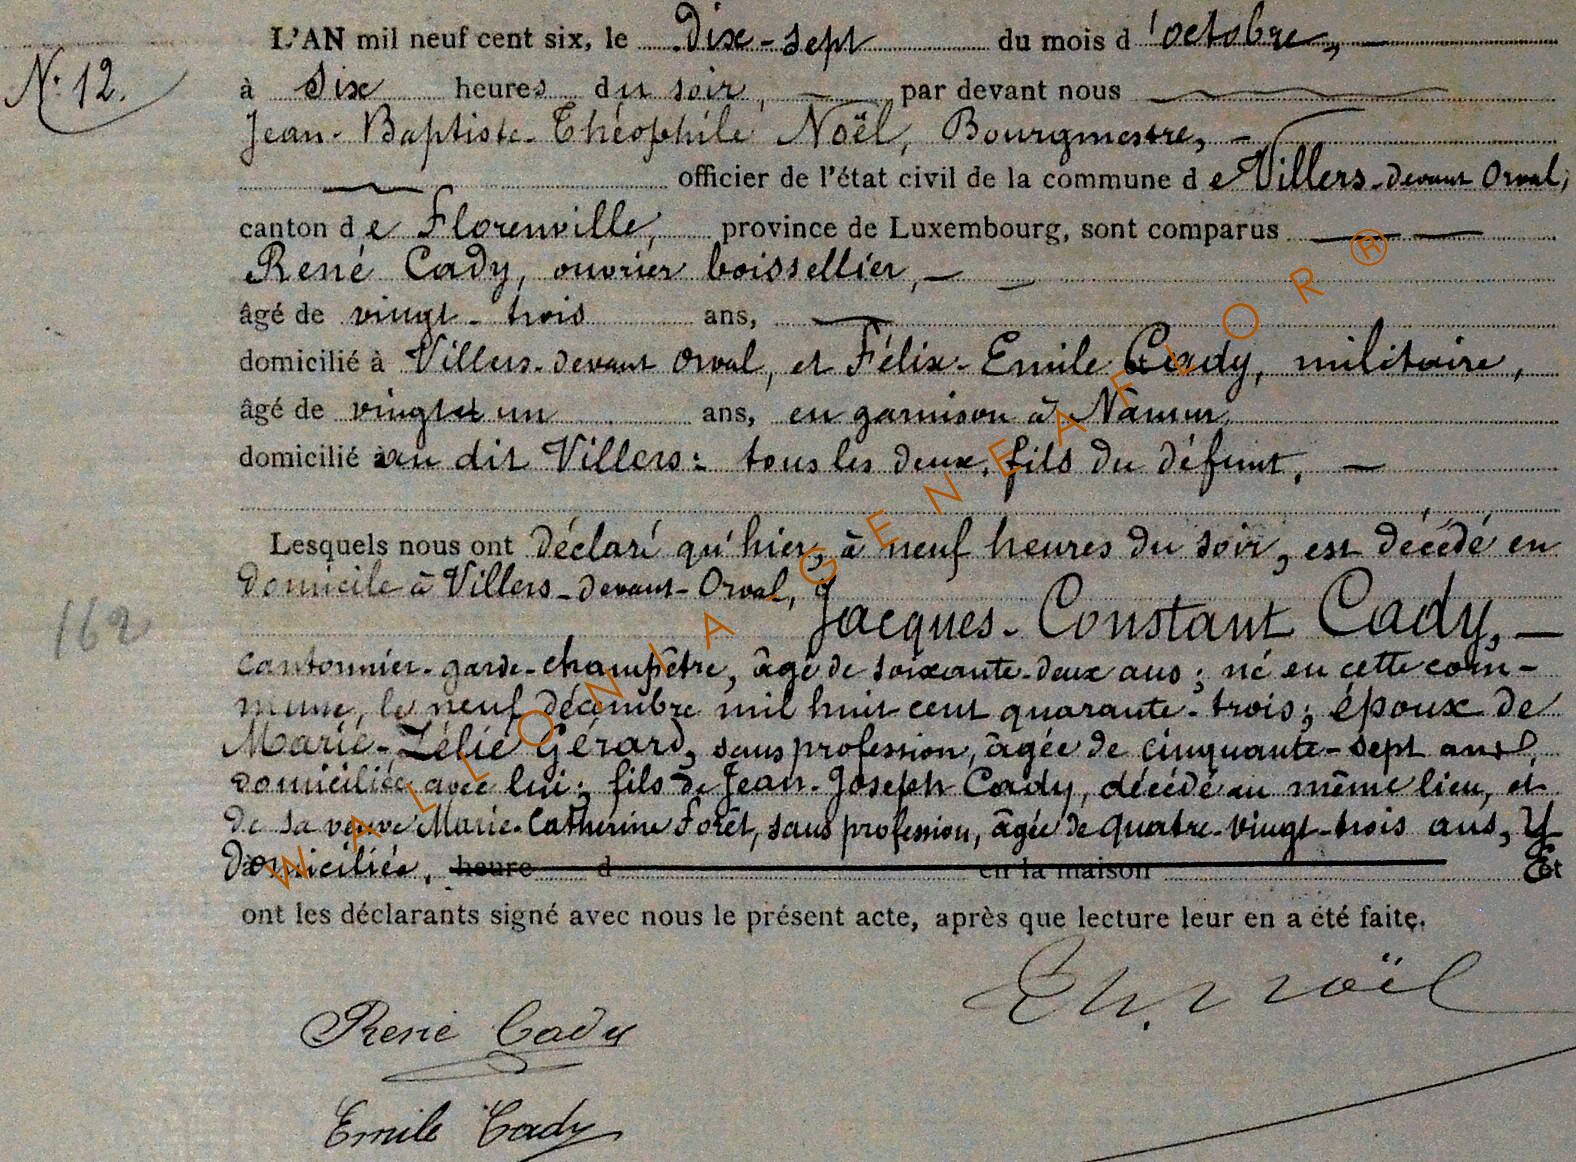 L'AN mil neuf cent six, le Dix-sept du mois d'octobre,
N° 12.
à six heures du soir, par devant nous
Jean-Baptiste-Théophile Noël, Bourgmestre,
officier de l'état civil de la commune de Villers-devant Orval,
canton de Florenville, province de Luxembourg, sont comparus
René Cady, ouvrier boissellier,
âgé de vingt-trois ans,
domicilié à Villers-devant Orval, et Félix-Emile Cady, militaire,
âgé de vingt et un ans, en garnison à Namur,
domicilié au dit Villers: tous les deux fils du défunt,
Lesquels nous ont déclaré qu'hier, à neuf heures du soir, est décédé en
domicile à Villers-devant-Orval,
Jacques-Constant Cady,
162
cantonnier-garde-champêtre, âgé de soixante-deux ans; né en cette com-
mune, le neuf décembre mil huit cent quarante-trois; époux de
Marie-Zélie Gérard, sans profession, âgée de cinquante-sept ans,
domiciliée avec lui; fils de Jean-Joseph Cady, décédé au même lieu, et
de sa veuve Marie-Catherine Forêt, sans profession, âgée de quatre-vingt-trois ans, y
domiciliée. heure d en la maison Et
ont les déclarants signé avec nous le présent acte, après que lecture leur en a été faite.
Th. Noël
René Cady
Emile Cady
WALLONIA GENEAFLOR ®